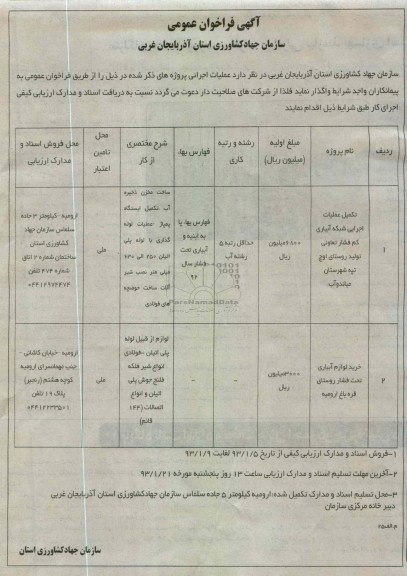 آگهی فراخوان عمومی
سازمان جهادکشاورزی استان آذربایجان غربی
سازمان جهاد کشاورزی استان آذربایجان غربی در نظر دارد عملیات اجرائی پروژه های ذکر شده در ذیل را از طریق فراخوان عمومی به
پیمانکاران واجد شرایط واگذار نماید فلذا از شرکت های صلاحیت دار دعوت می گردد نسبت به دریافت اسناد و مدارک ارزیابی کیفی
اجرای کار طبق شرایط ذیل اقدام نمایند
ردیف
نام پروژه
مبلغ اولیه
(میلیون ریال)
رشته و رتبه
کاری
فهارس بها،
شرح مختصری
از کار
محل
تامین
اعتبار
محل فروش اسناد و
مدارک ارزیابی
۱
تکمیل عملیات
اجرایی شبکه آبیاری
کم فشار تعاونی
تولید روستای اوچ
تپه شهرستان
میاندوآب
۶۸۰۰میلیون
ریال
حداقل رتبه ۵
رشته آب
فهارس بها، پا
به ابنیه و
آبیاری تحت
فشار سال
۹۲
ساخت مخزن ذخیره
آب تکمیل ایستگاه
پمپاژ عملیات لوله
گذاری با لوله پلی
اتیلن ۲۵۰ الی ۶۳۰
میلی متر نصب شیر
آلات ساخت حوضچه
های فولادی
ملی
ارومیه -کیلومتر ۳جاده
سلماس سازمان جهاد
کشاورزی استان
ساختمان شماره ۲ اتاق
شماره ۲۷۴ تلفن
۰۴۴۱۲۹۷۲۴۷۲
ParsNamadData
۲
خرید لوازم آبیاری
تحت فشار روستای
قره باغ ارومیه
۳۰۰۰میلیون
ریال
-
-
لوازم از قبیل لوله
پلی اتیلن ،فولادی
انواع شیر فلکه
فلنج جوش پلی
اتیلن و انواع
اتصالات (۱۴۴
قلم)
ملی
ارومیه -خیابان کاشانی -
جنب مهمانسرای ارومیه
کوچه هشتم (رنجبر)
پلاک ۱۹ تلفن
۰۴۴۱۲۲۳۳۵۰۱
۱-فروش اسناد و مدارک ارزیابی کیفی از تاریخ ۹۳/۱/۵ لغایت ۹۳/۱/۹
۲-آخرین مهلت تسلیم اسناد و مدارک ارزیابی ساعت ۱۳ روز پنجشنبه مورخه ۹۳/۱/۲۱
۳-محل تسلیم اسناد و مدارک تکمیل شده:ارومیه کیلومتر ۵ جاده سلماس سازمان جهادکشاورزی استان آذربایجان غربی
دبیر خانه مرکزی سازمان
م.الف۲۵
سازمان جهادکشاورزی استان